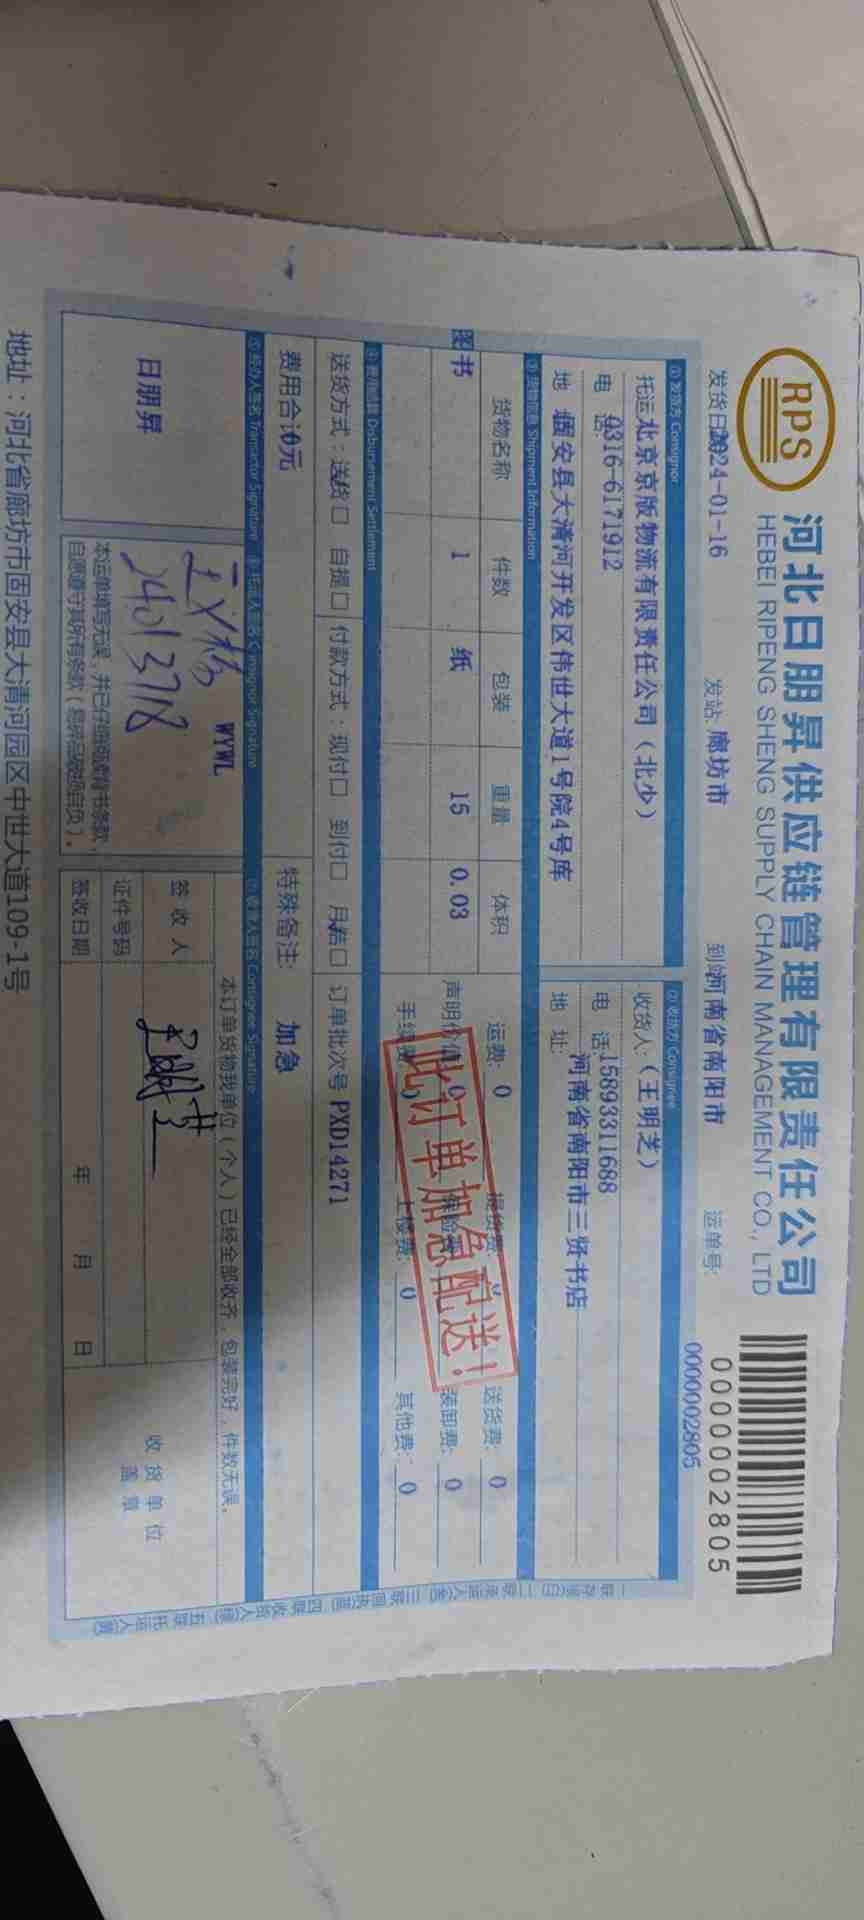 RPS
河北日朋昇供应链管理有限责任公司
HEBEI RIPENG SHENG SUPPLY CHAIN MANAGEMENT CO., LTD
0000002805
发货日期2024-01-16 发站: 廊坊市 到站河南省南阳市 运单号: 0000002805
① 发货方 Consignor ② 收货方 Consignee
托运北京京版物流有限责任公司（北少） 收货人:（王明芝）
电 话: 0316-6171912 电 话: 15893311688
地 固安县大清河开发区伟世大道1号院4号库 地 址: 河南省南阳市三贤书店
③ 货物信息 Shipment Information
货物名称 件数 包装 重量 体积 运费: 0 提货费 送货费: 0
图书 1 纸 15 0.03 声明价值 0 保险费 装卸费: 0
手续费 0 上楼费: 0 其他费: 0
此订单加急配送!
④ 费用结算 Disbursement Settlement
送货方式: 送货□ 自提□ 付款方式: 现付□ 到付□ 月结□ 订单批次号 PXD14271
费用合计0元 特殊备注: 加急
⑤ 经办人签名 Transactor Signature ⑥ 托运人签名 Consignor Signature ⑦ 收货人签名 Consignee Signature
日朋昇
WYWL
本运单填写无误，并已仔细阅读背书条款，
自愿遵守其所有条款（易碎品破损自负）。
本订单货物我单位（个人）已经全部收齐，包装完好，件数无误。
签收人 王明芝
证件号码
签收日期 年 月 日
收货单位
盖章
地址：河北省廊坊市固安县大清河园区中世大道109-1号